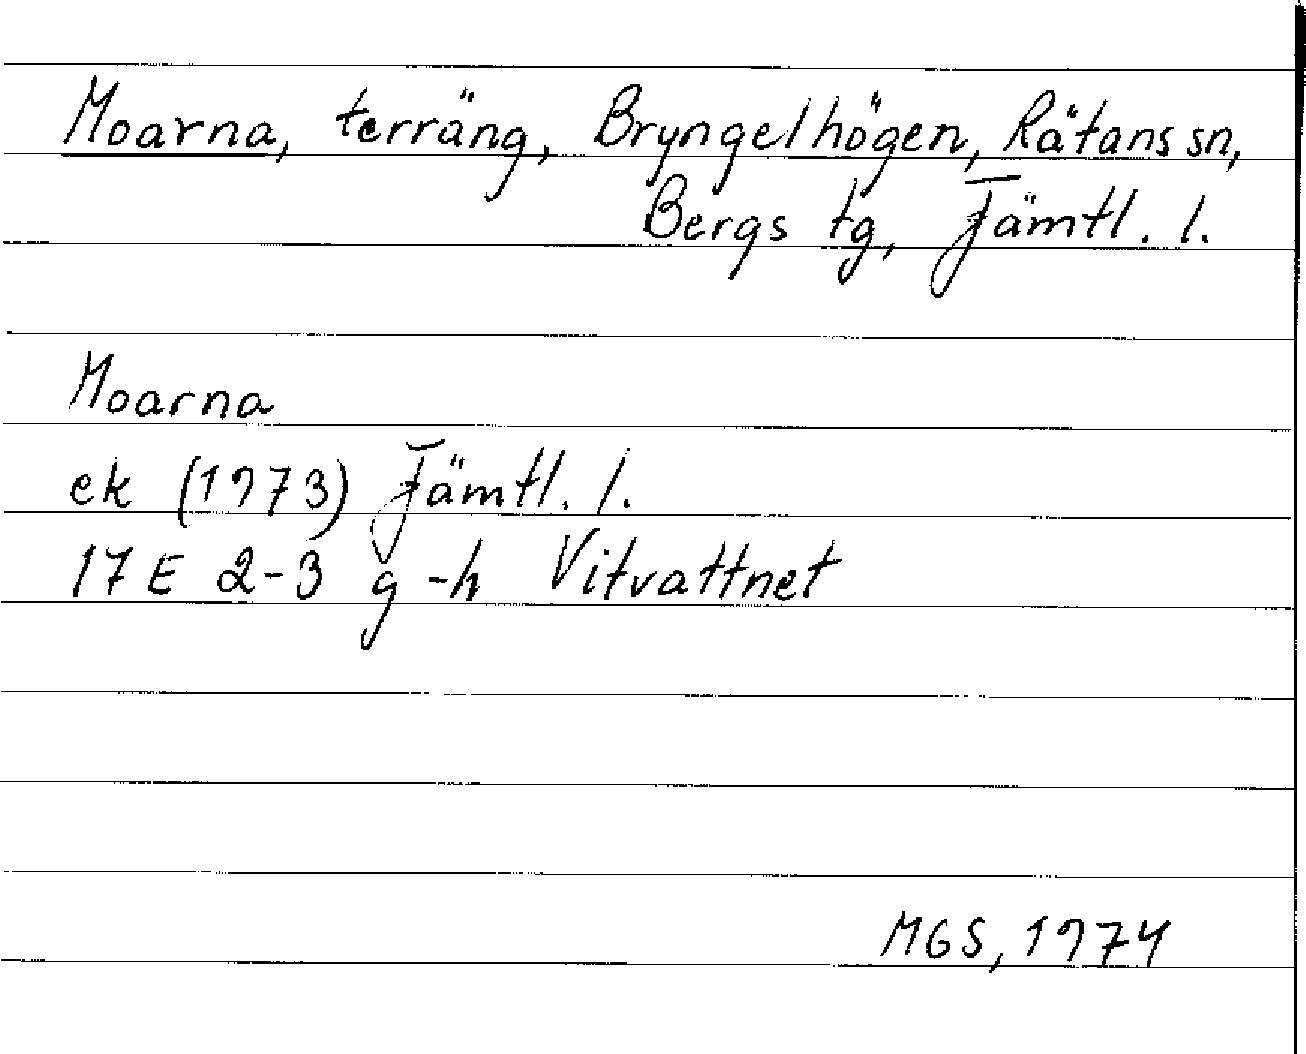 Moarna, terräng, Bryngelhögen, Rätans sn,
Bergs tg, Jämtl. l.
Moarna
ek (1973) Jämtl. l.
17 E 2-3 g-h Vitvattnet
MGS, 1974